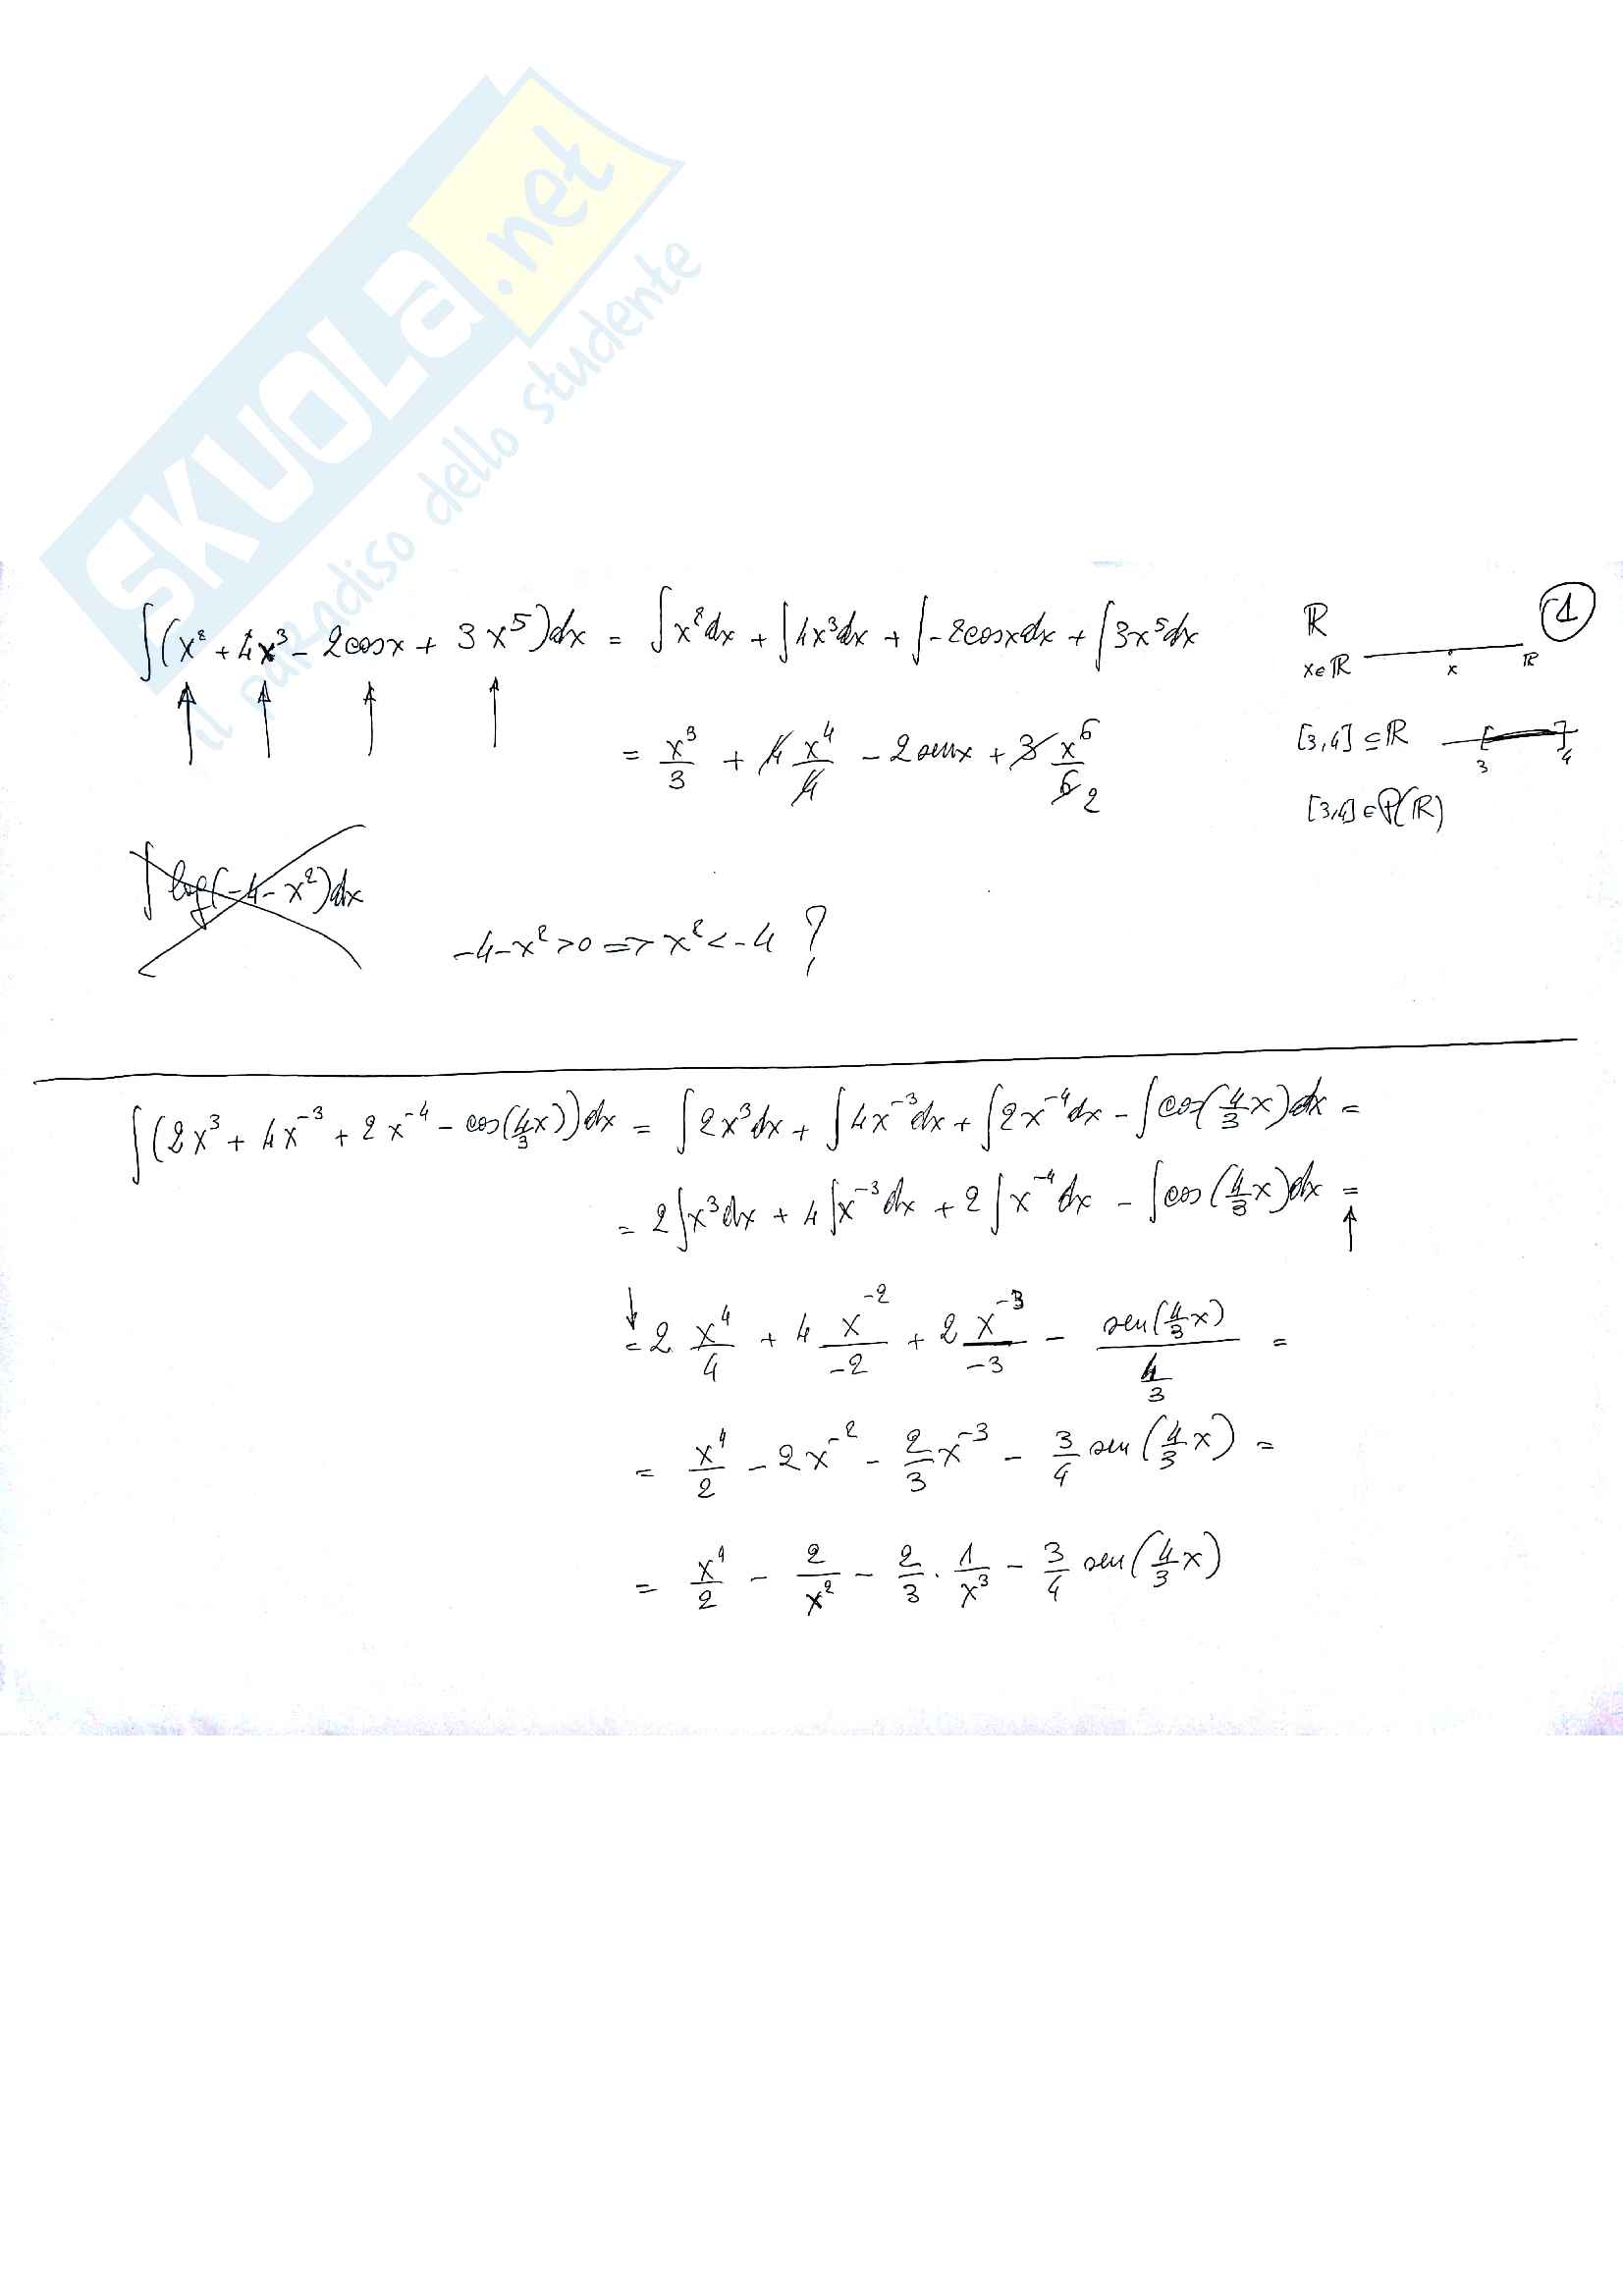 SKUOLA.net
il paradiso dello studente
①
∫(x² + 4x³ - 2cosx + 3x⁵)dx = ∫x²dx + ∫4x³dx + ∫-2cosxdx + ∫3x⁵dx
= x³/3 + 4 x⁴/4 - 2senx + 3 x⁶/6 2
ℝ
x∈ℝ x ℝ
[3,4] ⊆ ℝ [ ] 3 4
[3,4] ∈ P(ℝ)
∫log(-4-x²)dx
-4-x²>0 => x²<-4 ?
∫(2x³ + 4x⁻³ + 2x⁻⁴ - cos(4/3 x))dx = ∫2x³dx + ∫4x⁻³dx + ∫2x⁻⁴dx - ∫cos(4/3 x)dx =
= 2∫x³dx + 4∫x⁻³dx + 2∫x⁻⁴dx - ∫cos(4/3 x)dx =
= 2 x⁴/4 + 4 x⁻²/-2 + 2 x⁻³/-3 - sen(4/3 x)/(4/3) =
= x⁴/2 - 2x⁻² - 2/3 x⁻³ - 3/4 sen(4/3 x) =
= x⁴/2 - 2/x² - 2/3 · 1/x³ - 3/4 sen(4/3 x)